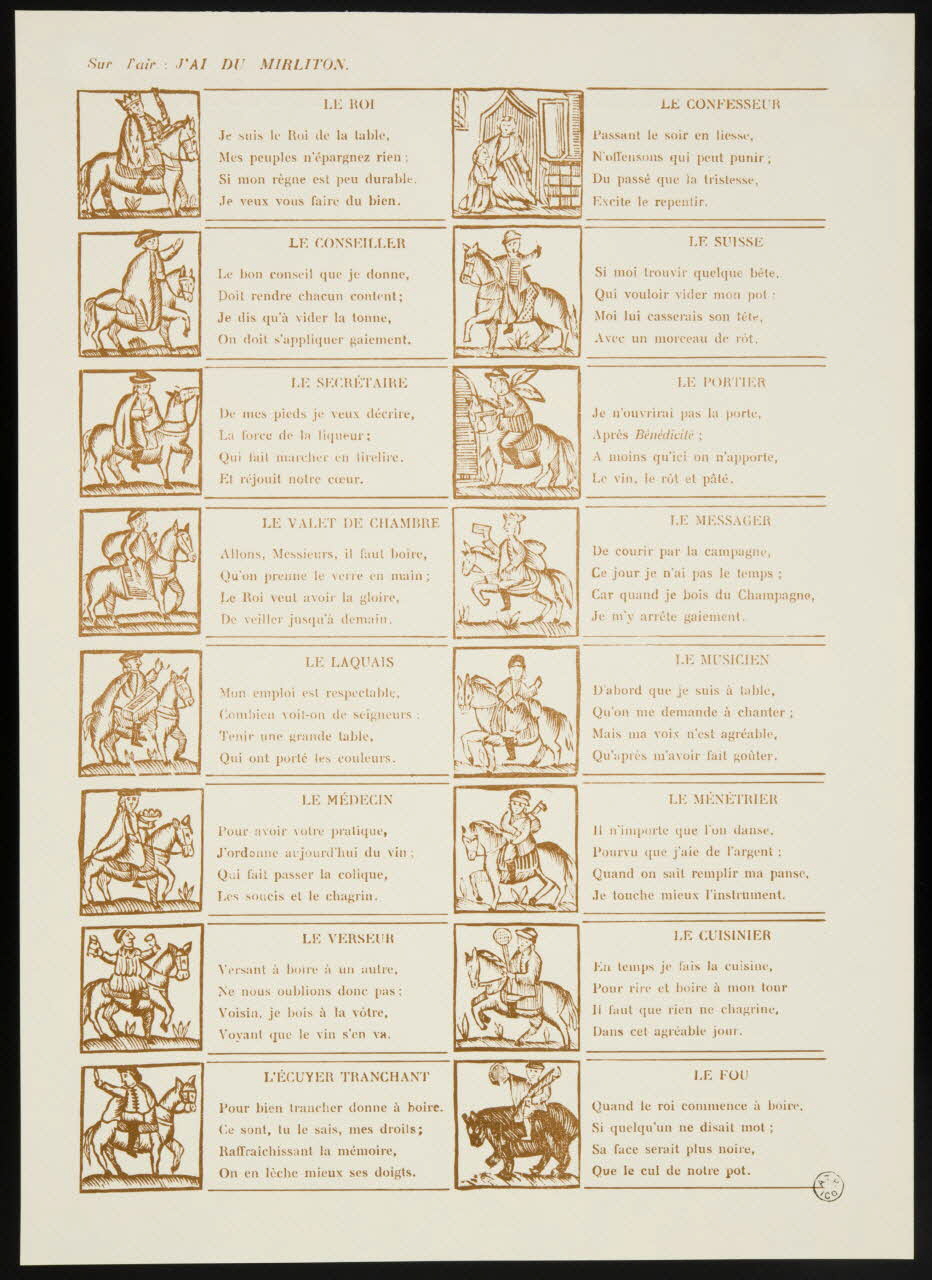 Sur l'air : J'AI DU MIRLITON.
LE ROI
Je suis le Roi de la table,
Mes peuples n'épargnez rien ;
Si mon règne est peu durable.
Je veux vous faire du bien.
LE CONSEILLER
Le bon conseil que je donne,
Doit rendre chacun content ;
Je dis qu'à vider la tonne,
On doit s'appliquer gaiement.
LE SECRÉTAIRE
De mes pieds je veux décrire,
La force de la liqueur ;
Qui fait marcher en tirelire.
Et réjouit notre cœur.
LE VALET DE CHAMBRE
Allons, Messieurs, il faut boire,
Qu'on prenne le verre en main ;
Le Roi veut avoir la gloire,
De veiller jusqu'à demain.
LE LAQUAIS
Mon emploi est respectable,
Combien voit-on de seigneurs :
Tenir une grande table,
Qui ont porté les couleurs.
LE MÉDECIN
Pour avoir votre pratique,
J'ordonne aujourd'hui du vin ;
Qui fait passer la colique,
Les soucis et le chagrin.
LE VERSEUR
Versant à boire à un autre,
Ne nous oublions donc pas ;
Voisin, je bois à la vôtre,
Voyant que le vin s'en va.
L'ÉCUYER TRANCHANT
Pour bien trancher donne à boire.
Ce sont, tu le sais, mes droits ;
Raffraichissant la mémoire,
On en lèche mieux ses doigts.
LE CONFESSEUR
Passant le soir en liesse,
N'offensons qui peut punir ;
Du passé que la tristesse,
Excite le repentir.
LE SUISSE
Si moi trouvir quelque bête,
Qui vouloir vider mon pot :
Moi lui casserais son tête,
Avec un morceau de rôt.
LE PORTIER
Je n'ouvrirai pas la porte,
Après Bénédicité ;
A moins qu'ici on n'apporte,
Le vin, le rôt et pâté.
LE MESSAGER
De courir par la campagne,
Ce jour je n'ai pas le temps ;
Car quand je bois du Champagne,
Je m'y arrête gaiement.
LE MUSICIEN
D'abord que je suis à table,
Qu'on me demande à chanter ;
Mais ma voix n'est agréable,
Qu'après m'avoir fait goûter.
LE MÉNÉTRIER
Il n'importe que l'on danse,
Pourvu que j'aie de l'argent ;
Quand on sait remplir ma panse,
Je touche mieux l'instrument.
LE CUISINIER
En temps je fais la cuisine,
Pour rire et boire à mon tour
Il faut que rien ne chagrine,
Dans cet agréable jour.
LE FOU
Quand le roi commence à boire,
Si quelqu'un ne disait mot ;
Sa face serait plus noire,
Que le cul de notre pot.